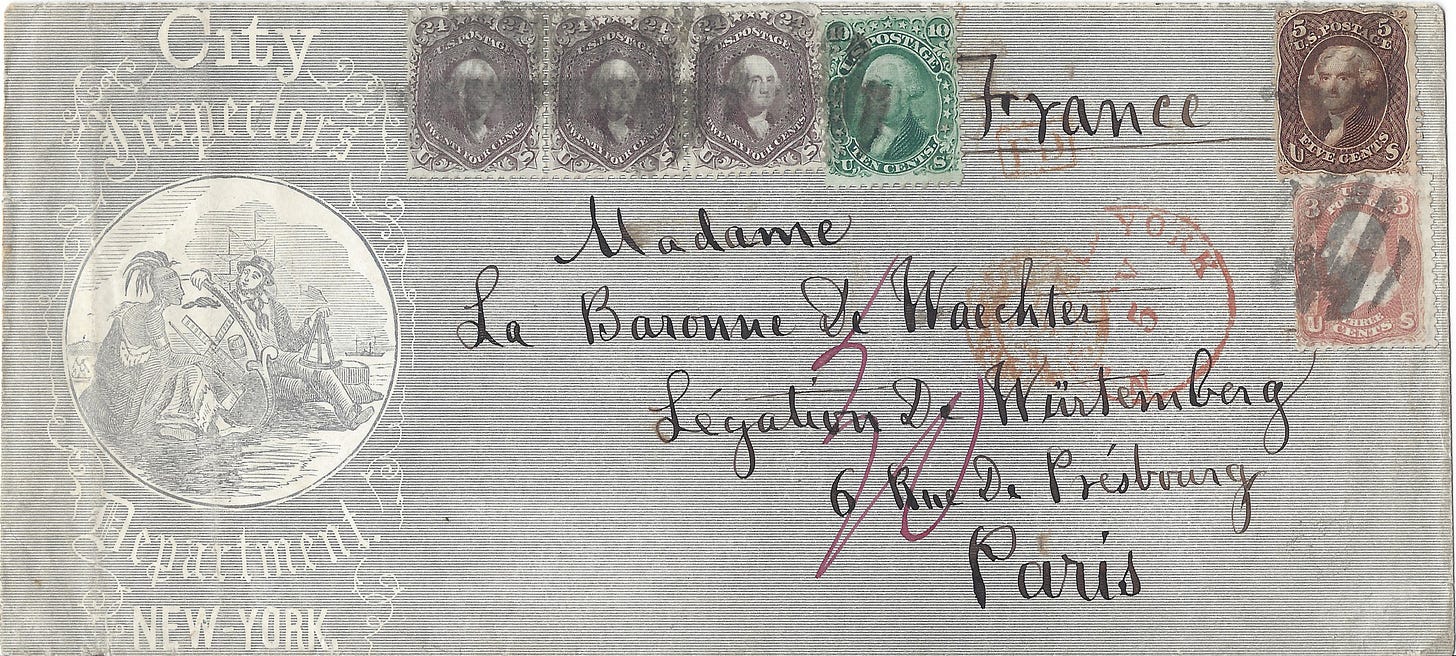 City
Inspectors
Department.
NEW-YORK.
24 24
U.S. POSTAGE
TWENTY FOUR CENTS
U S
24 24
U.S. POSTAGE
TWENTY FOUR CENTS
U S
24 24
U.S. POSTAGE
TWENTY FOUR CENTS
U S
10 10
U.S. POSTAGE
TEN CENTS
U S
France
PD
5 5
U.S. POSTAGE
FIVE CENTS
U S
3 3
THREE
CENTS
U S
YORK
Madame
La Baronne De Waechter
Légation De Würtemberg
6 Rue De Présbourg
Paris